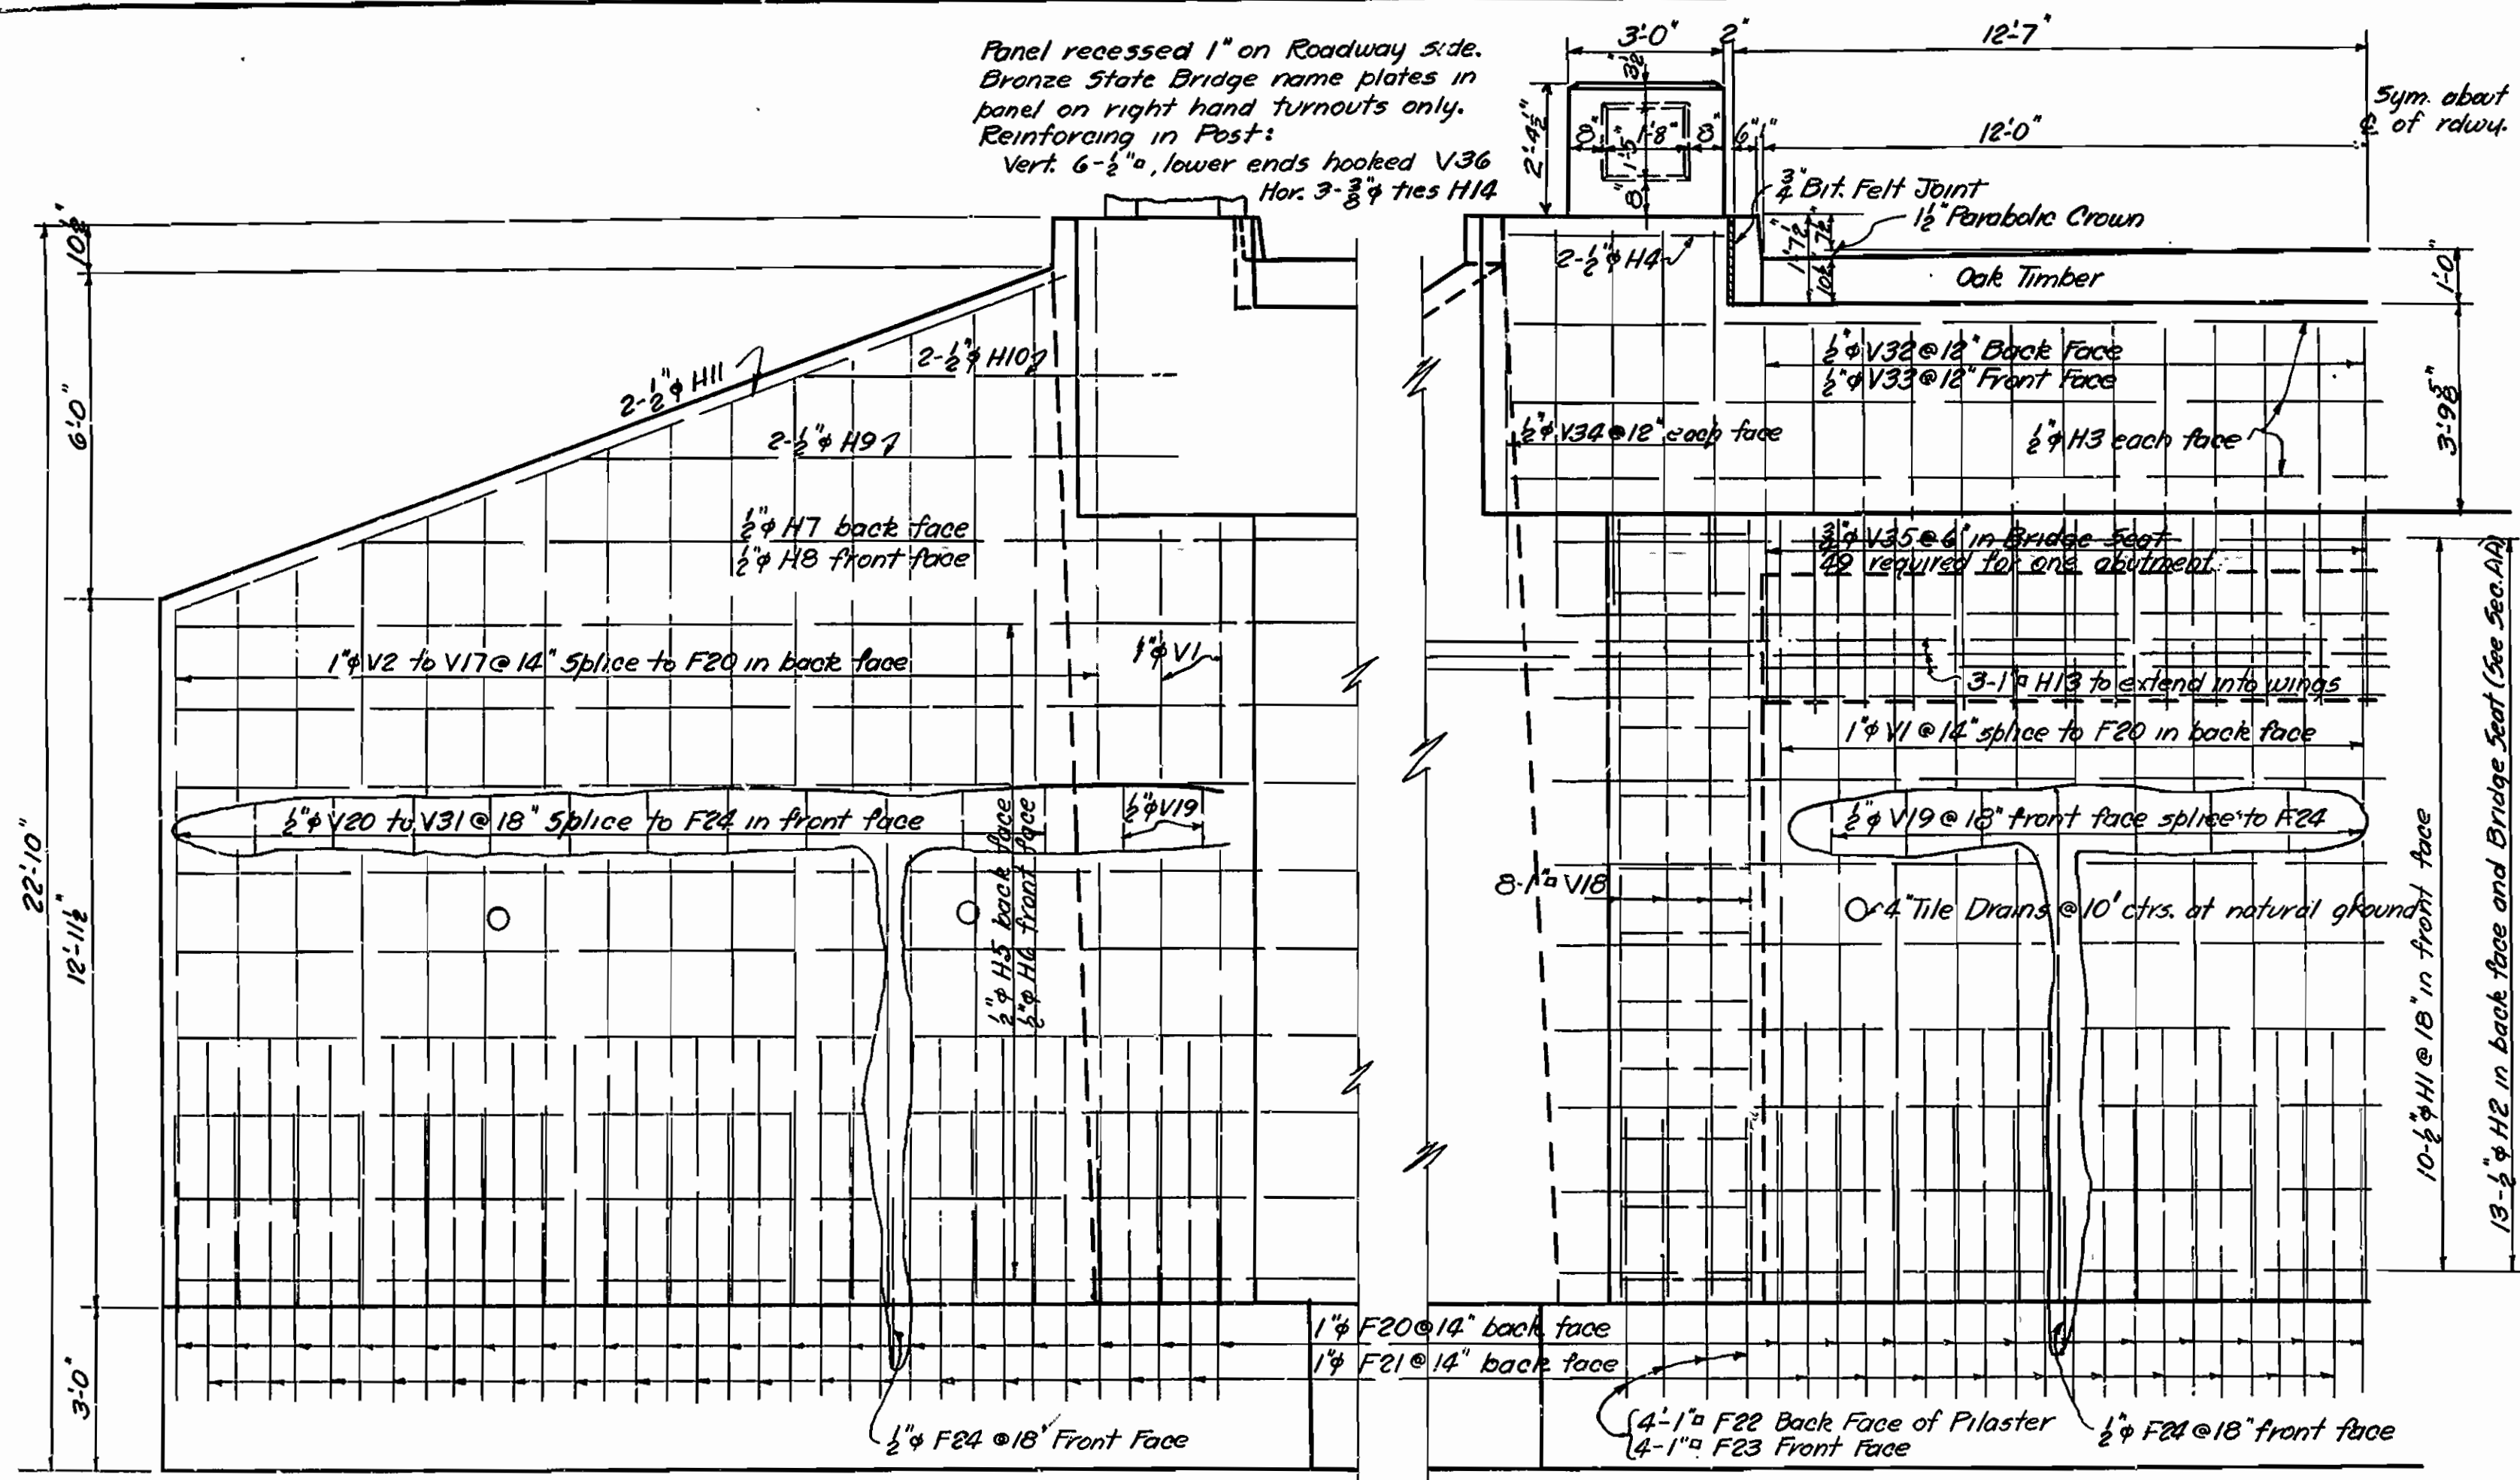 Panel recessed 1" on Roadway side.
Bronze State Bridge name plates in
panel on right hand turnouts only.
Reinforcing in Post:
Vert. 6-½"□, lower ends hooked V36
Hor. 3-⅜"φ ties H14
3'-0"
2"
12'-7"
3½"
2'-4½"
8"
1'-8"
8"
1'-5"
8"
6"
1"
12'-0"
Sym. about
℄ of rdwy.
¾" Bit. Felt Joint
1½" Parabolic Crown
1'-7½"
7½"
10½"
Oak Timber
1'-0"
3'-9⅝"
2-½"φ H4
½"φ V32 @ 12" Back Face
½"φ V33 @ 12" Front Face
½"φ V34 @ 12" each face
½"φ H3 each face
¾"φ V35 @ 6" in Bridge Seat
49 required for one abutment
3-1"□ H13 to extend into wings
1"φ V1 @ 14" splice to F20 in back face
½"φ V19 @ 18" front face splice to F24
8-1"□ V18
4" Tile Drains @ 10' ctrs. at natural ground
10-½"φ H1 @ 18" in front face
13-½"φ H2 in back face and Bridge Seat (See Sec. AA)
10½"
6'-0"
22'-10"
12'-11½"
3'-0"
2-½"φ H11
2-½"φ H10
2-½"φ H9
½"φ H7 back face
½"φ H8 front face
1"φ V2 to V17 @ 14" Splice to F20 in back face
1"φ V1
½"φ V20 to V31 @ 18" Splice to F24 in front face
½"φ V19
½"φ H5 back face
½"φ H6 front face
1"φ F20 @ 14" back face
1"φ F21 @ 14" back face
½"φ F24 @ 18" Front Face
4'-1"□ F22 Back Face of Pilaster
4-1"□ F23 Front Face
½"φ F24 @ 18" front face